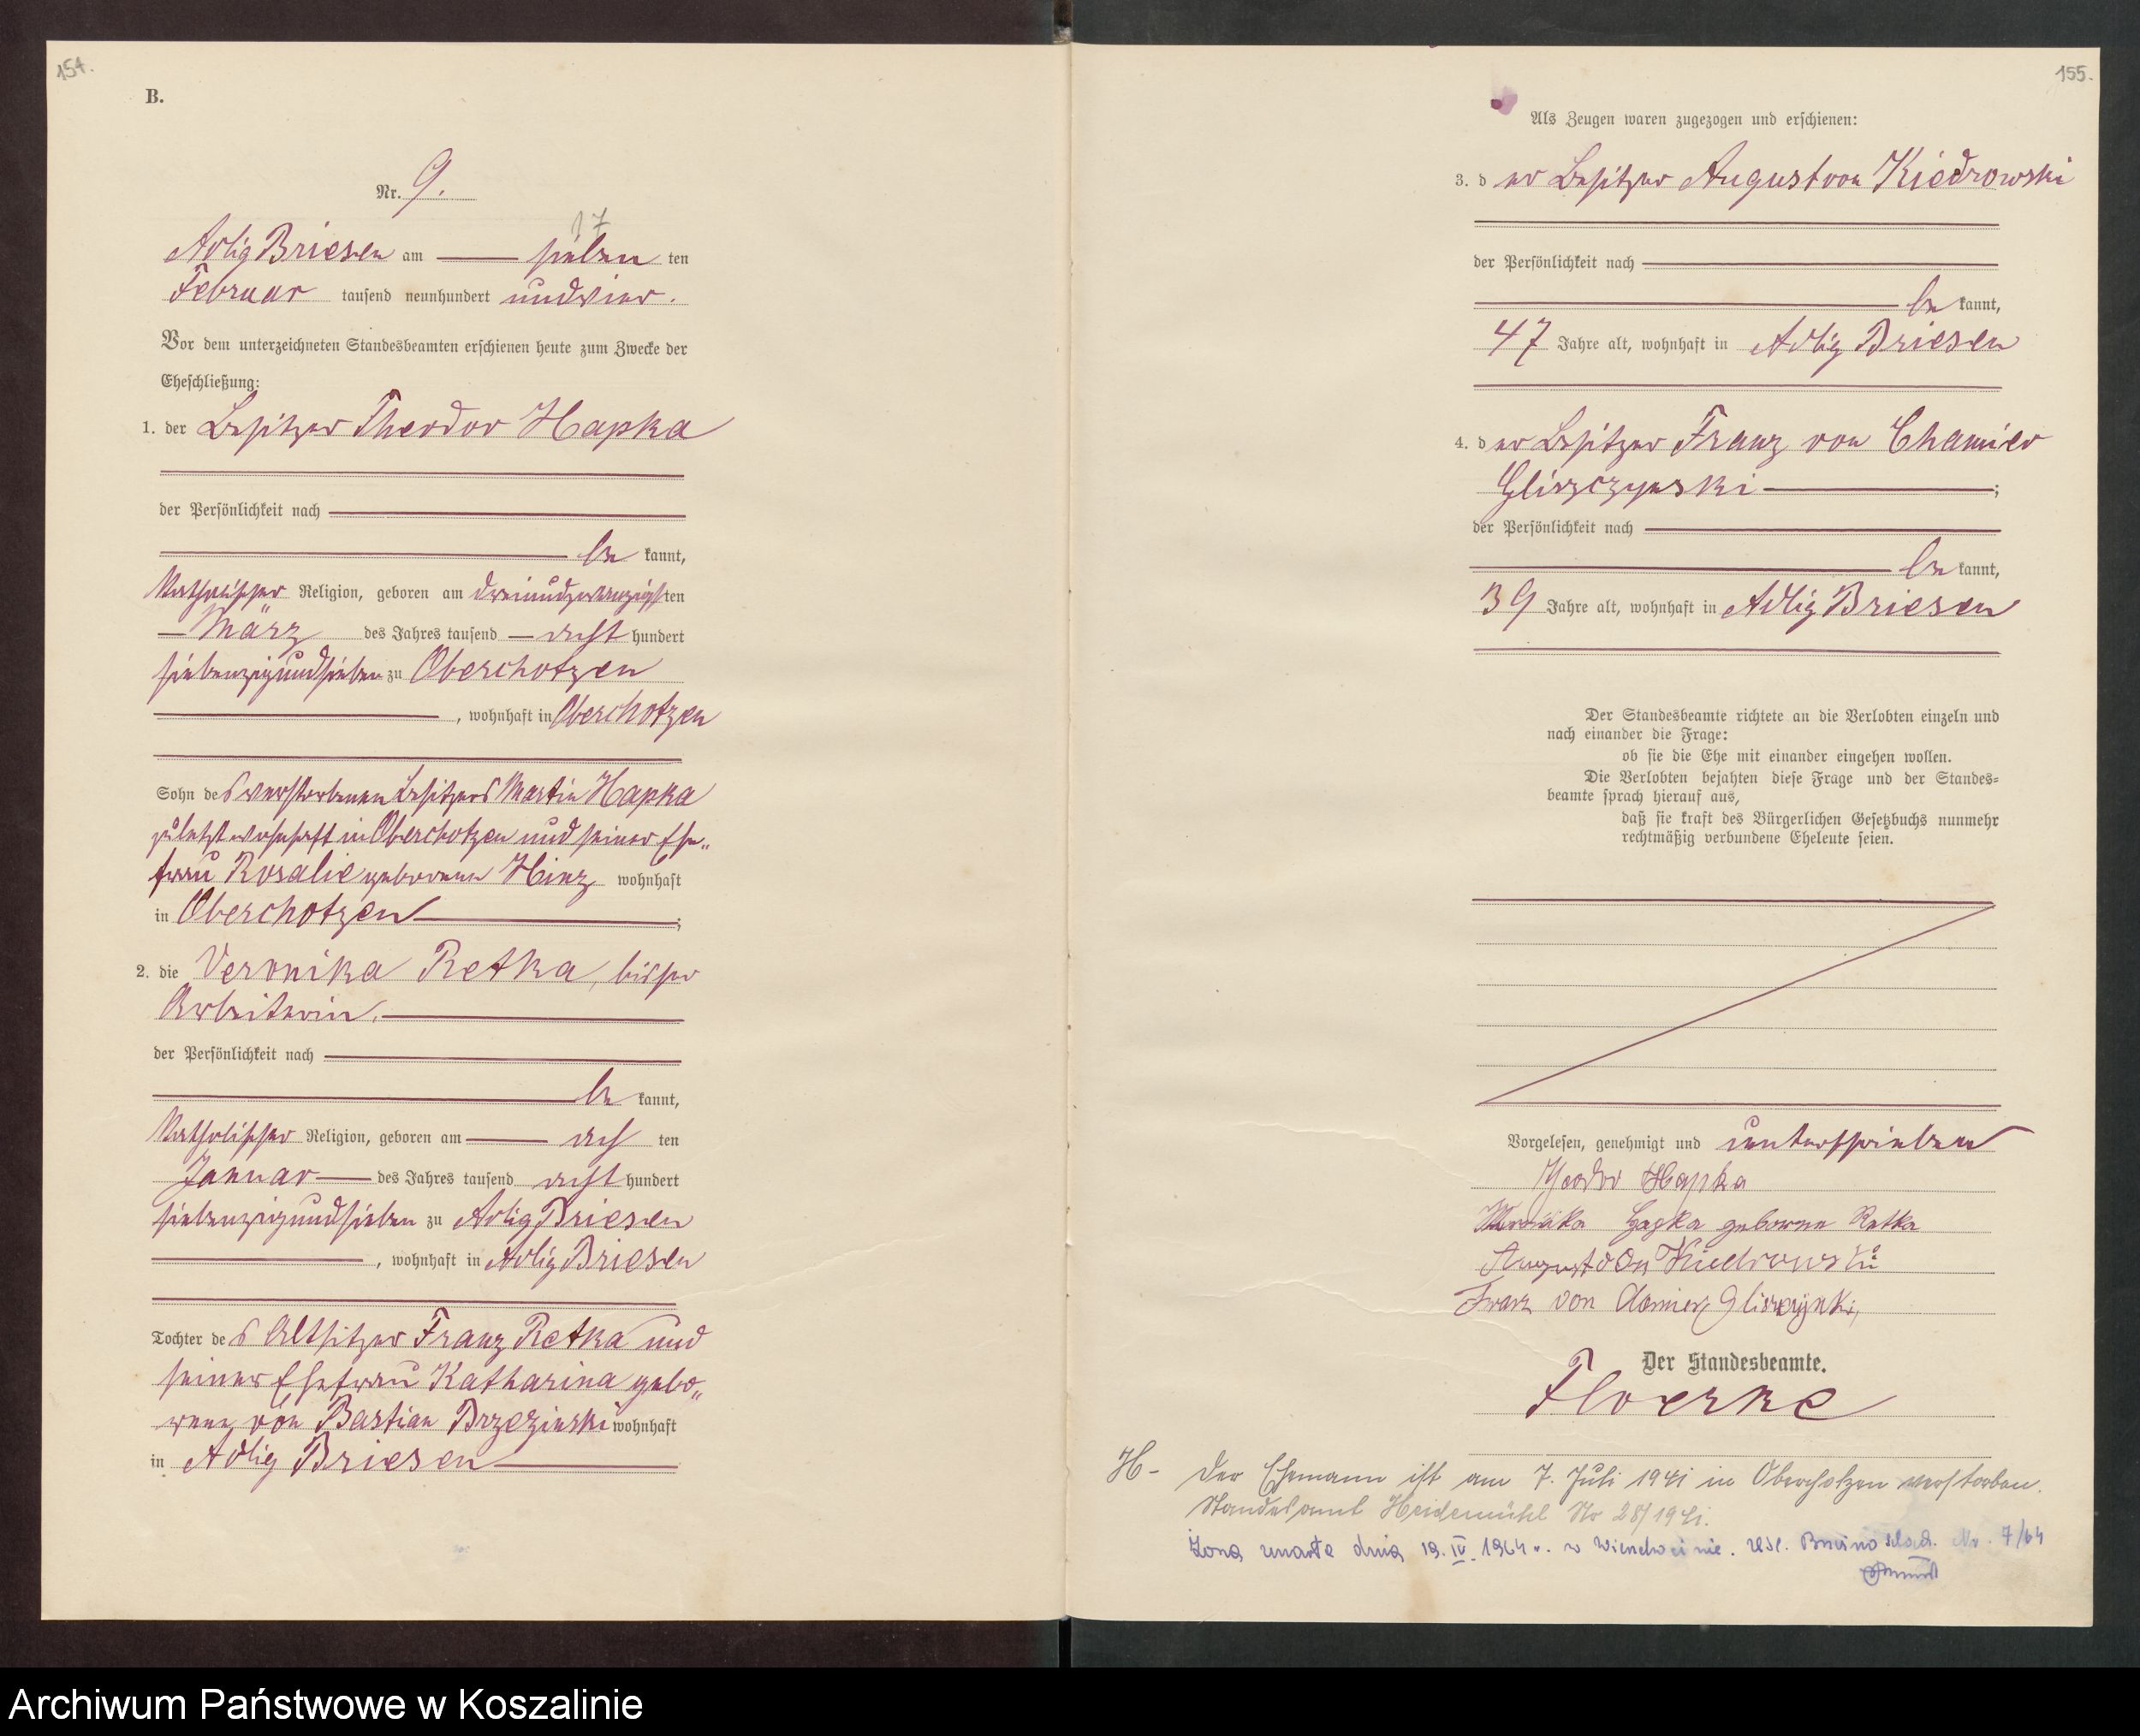 154.
B.
Nr. 9.
17
Adlig Briesen am sieben ten
Februar tausend neunhundert und vier.
Vor dem unterzeichneten Standesbeamten erschienen heute zum Zwecke der
Eheschließung:
1. der Besitzer Theodor Hapka
der Persönlichkeit nach
be kannt,
katholischer Religion, geboren am dreiundzwanzigsten
März des Jahres tausend acht hundert
siebenzigundsieben zu Oberchotzen
, wohnhaft in Oberchotzen
Sohn des verstorbenen Besitzers Martin Hapka
zuletzt wohnhaft in Oberchotzen und seiner Ehe„
frau Rosalie geborenen Hinz wohnhaft
in Oberchotzen ;
2. die Veronika Retka, bisher
Arbeiterin.
der Persönlichkeit nach
be kannt,
katholischer Religion, geboren am ach ten
Januar des Jahres tausend acht hundert
siebenzigundsieben zu Adlig Briesen
, wohnhaft in Adlig Briesen
Tochter des Altsitzer Franz Retka und
seiner Ehefrau Katharina gebo„
renen von Bastian Brzezinski wohnhaft
in Adlig Briesen
155.
Als Zeugen waren zugezogen und erschienen:
3. der Besitzer August von Kiedrowski
der Persönlichkeit nach
be kannt,
47 Jahre alt, wohnhaft in Adlig Briesen
4. der Besitzer Franz von Chamier
Gliszczynski ;
der Persönlichkeit nach
be kannt,
39 Jahre alt, wohnhaft in Adlig Briesen
Der Standesbeamte richtete an die Verlobten einzeln und
nach einander die Frage:
ob sie die Ehe mit einander eingehen wollen.
Die Verlobten bejahten diese Frage und der Standes-
beamte sprach hierauf aus,
daß sie kraft des Bürgerlichen Gesetzbuchs nunmehr
rechtmäßig verbundene Eheleute seien.
Vorgelesen, genehmigt und unterschrieben
Theodor Hapka
Weronika Hapka geborene Retka
August von Kiedrowski
Franz von Chamier Gliszczynski,
Der Standesbeamte.
Floerke
H- Der Ehemann ist am 7. Juli 1941 in Oberchotzen verstorben.
Standesamt Heidemühl Nr 28/1941.
Żona zmarła dnia 19. IV. 1964 r. w Wierzchocinie. USC. Nr. 7/64
Archiwum Państwowe w Koszalinie